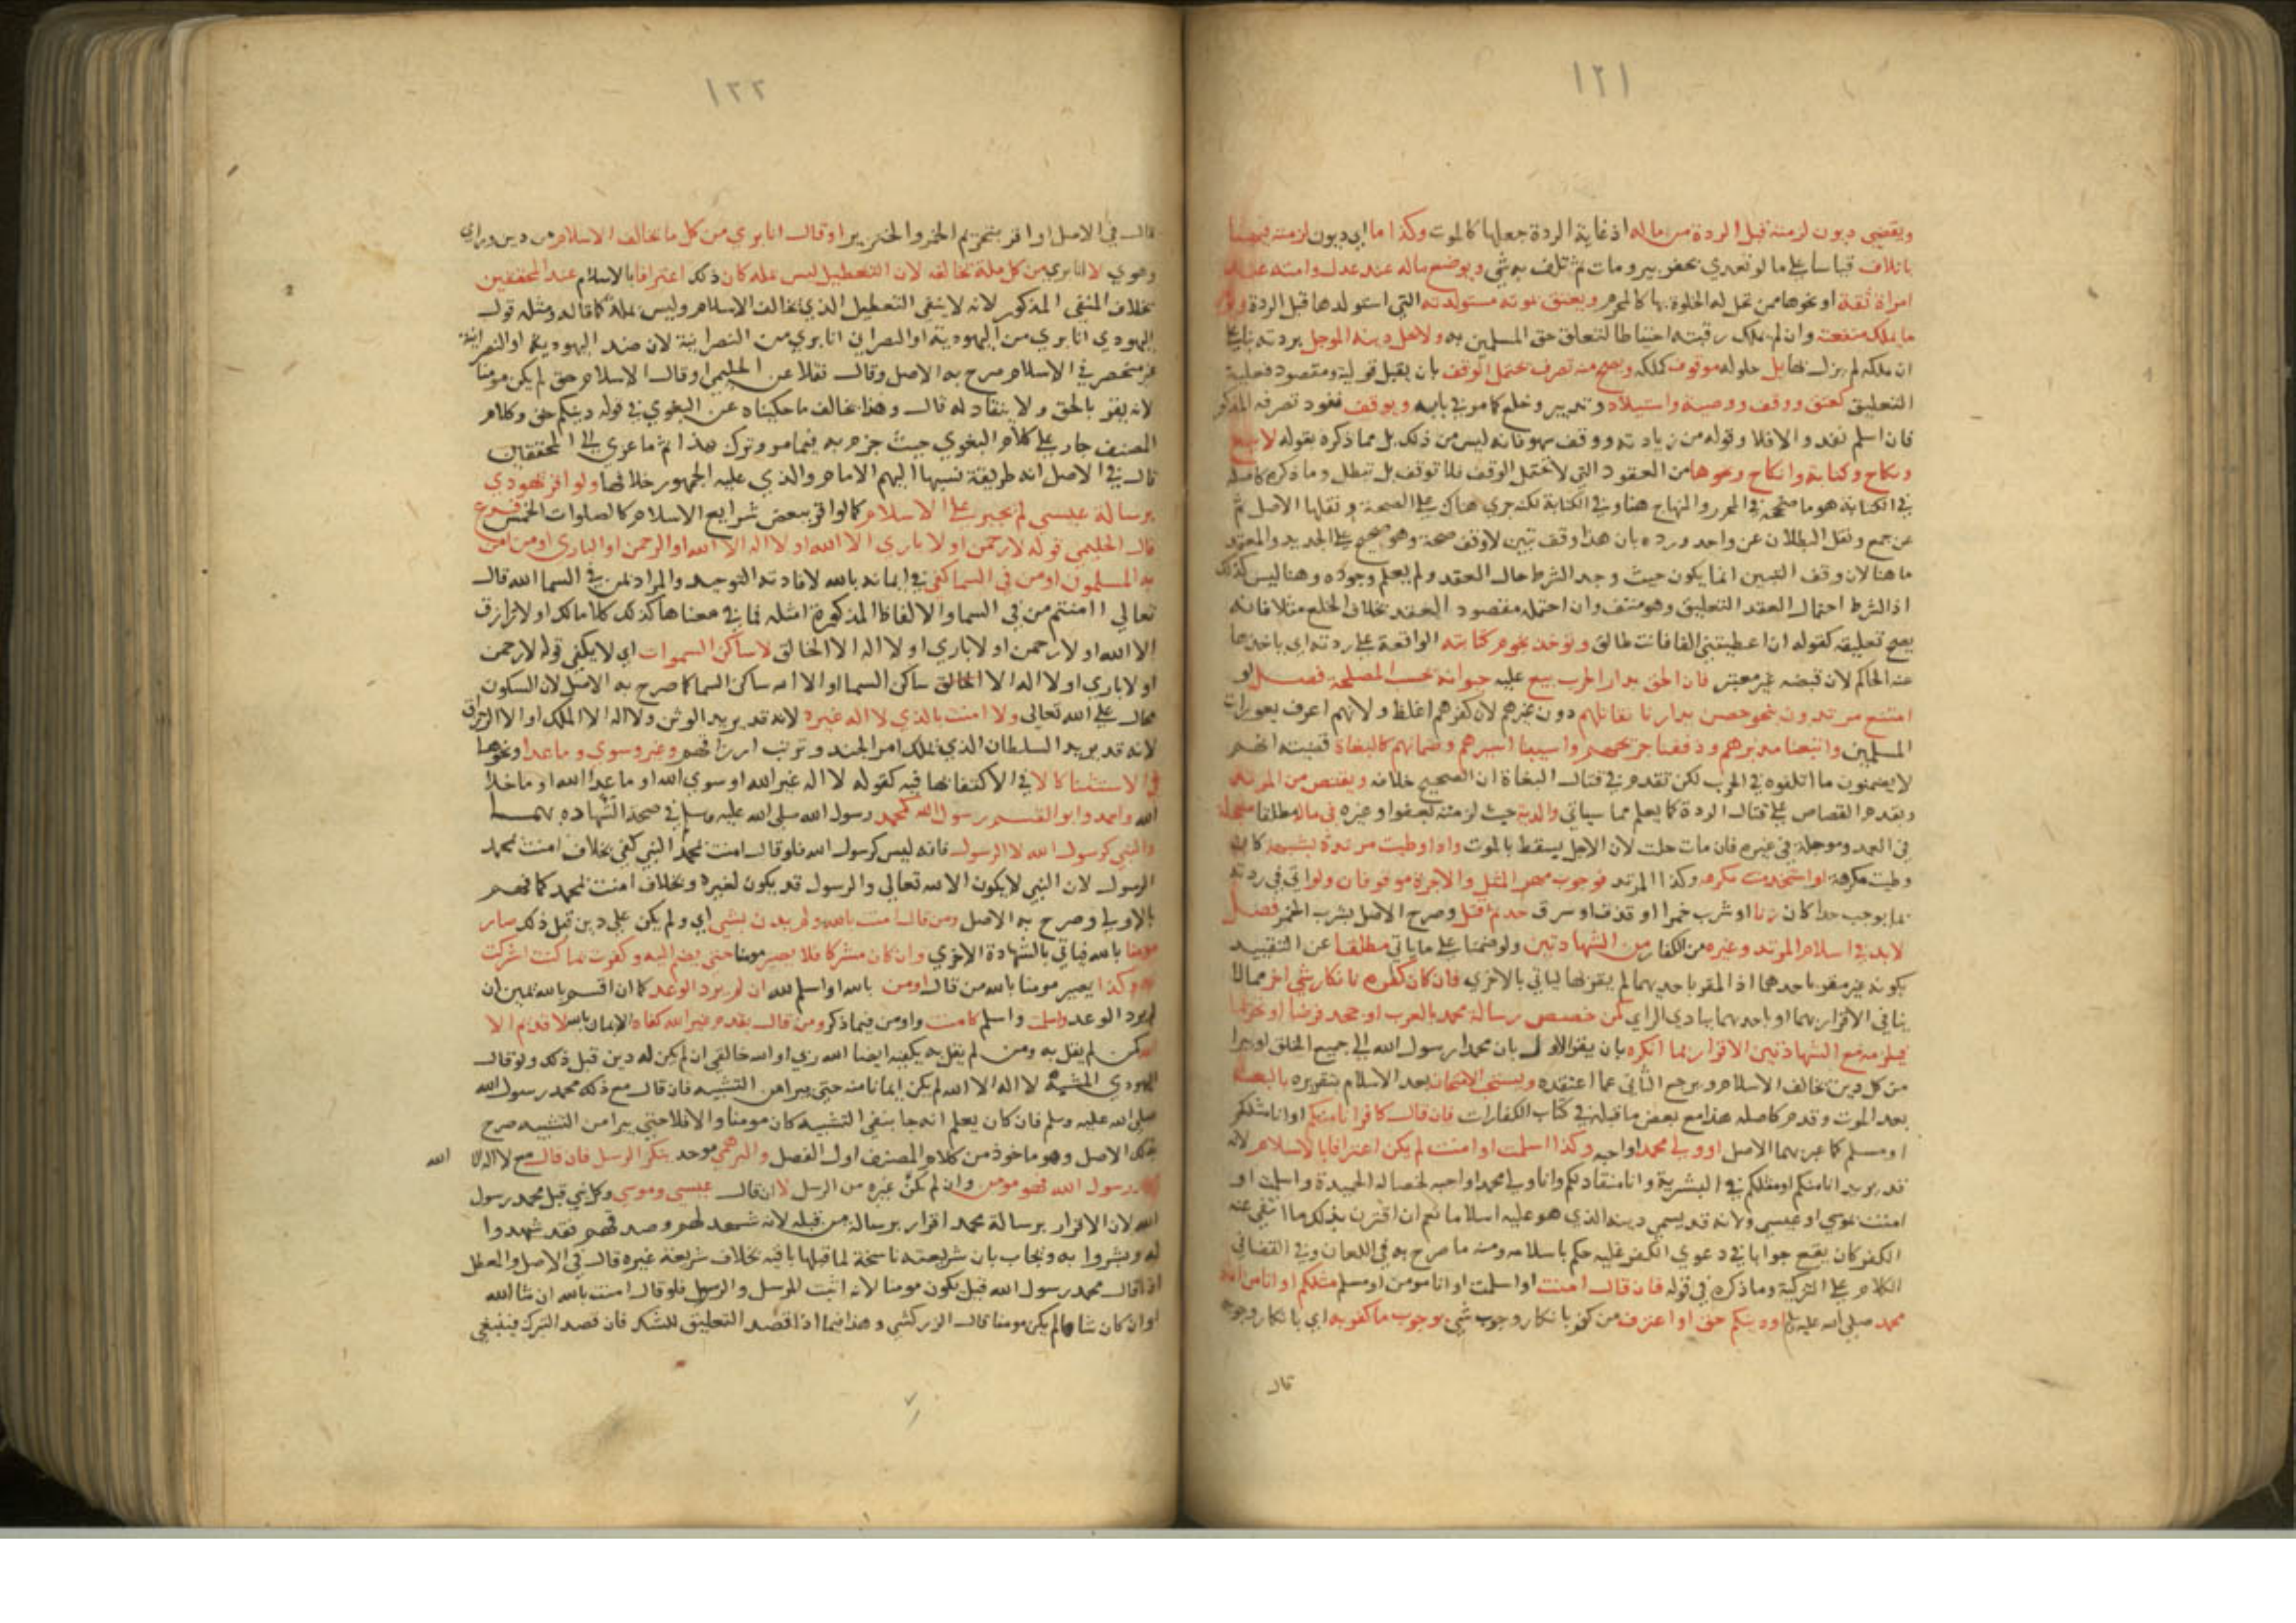 ١٢١
ويقضي ديون لزمته قبل الردة من ماله اذ غاية الردة جعلها كالموت وكذا ما اي ديون لزمته فيها
باتلاف قياسا على ما لو تعدي بحفر بير ومات ثم تلف به شي ويوضع ماله عند عدل وامته عند
امراة ثقة او نحوها ممن تحل له الخلوة بها كالمحرم ويعتق بموته مستولدته التي استولدها قبل الردة
ما يملك منفعته وان لم يملك رقبته احتياطا لتعلق حق المسلمين به ولا يحل دينه الموجل بردته بنا على
ان ملكه لم يزل بها بل حلوله موقوف كملكه ويصح منه تصرف يحتمل الوقف بان يقبل قوليه ومقصود فعليه
التعليق كعتق ووقف ووصية واستيلاد وتدبير وخلع كما مر في بابه ويوقف نفوذ تصرفه المذكور
فان اسلم نفذ والا فلا وقوله من زيادته ووقف سهو فانه ليس من ذلك بل مما ذكره بقوله لا بيع
ونكاح وكتابة وانكاح ونحوها من العقود التي لا تحتمل الوقف فلا توقف بل تبطل وما ذكره كاصله
في الكتابة هو ما صححه في المحرر والمنهاج هنا وفي الكتابة لكنه جري هناك على الصحة ونقلها الاصل ثم
عن جمع ونقل البطلان عن واحد ورده بان هذا وقف تبين لا وقف صحة وهو صحيح على الجديد والمعتمد
ما هنا لان وقف التبين انما يكون حيث وجد الشرط حال العقد ولم يعلم وجوده وهنا ليس كذلك
اذ الشرط احتمال العقد التعليق وهو منتف وان احتمله مقصود العقد بخلاف الخلع مثلا فانه
يصح تعليقه كقوله ان اعطيتني الفا فانت طالق وتوخذ نجوم كتابته الواقعة على ردته اي ياخذها
منه الحاكم لان قبضه غير معتبر فان لحق بدار الحرب بيع عليه حيوانه بحسب المصلحة فصل لو
امتنع مرتدون بنحو حصن بدارنا نقاتلهم دون غيرهم لان كفرهم اغلظ ولانهم اعرف بعورات
المسلمين واتبعنا مدبرهم وذففنا جريحهم واستبنا اسيرهم وضمانهم كالبغاة قضيته انهم
لا يضمنون ما اتلفوه في الحرب لكن تقدم في قتال البغاة ان الصحيح خلافه ويقتص من المرتد
ويقدم القصاص على قتال الردة كما يعلم مما سياتي والدية حيث لزمته لعفو او غيره في ماله مطلقا معجلة
في العمد وموجلة في غيره فان مات حلت لان الاجل يسقط بالموت واذا وطيت مرتدة بشبهة كان
وطيت مكرهة او استخدمت مكرهه وكذا المرتد فوجوب مهر المثل والاجرة موقوفان ولو اتي في ردته
بما يوجب حدا كان زنا او شرب خمرا او قذف او سرق حد ثم قتل وصرح الاصل بشرب الخمر فصل
لا بد في اسلام المرتد وغيره من الكفار من الشهادتين ولو ضمنا على ما ياتي مطلقا عن التقييد
بكونه غير مقر باحدهما اذ المقر باحديهما لم يقر بها لياتي بالاخري فان كان كفره بانكار شي اخر مما لا
ينافي الاقرار بهما او باحديهما ببادي الراي كمن خصص رسالة محمد بالعرب او جحد فرضا او تحريما
فيلزمه مع الشهادتين الاقرار بما انكره بان يقر الاول بان محمدا رسول الله الى جميع الخلق او يبرا
من كل دين يخالف الاسلام ويرجع الثاني عما اعتقده ويستحب الامتحان بعد الاسلام بتقريره بالبعث
بعد الموت وقدم كاصله هذا مع بعض ما قبله في كتاب الكفارات فان قال كافر انا منكم او انا مثلكم
او مسلم كما عبر بهما الاصل او ولي محمد او احبه وكذا اسلمت او امنت لم يكن اعترافا بالاسلام لانه
قد يريد انا منكم او مثلكم في البشرية وانا منقاد لكم وانا ولي محمد او احبه لخصاله الحميدة واسلمت او
امنت بموسي او عيسي ولانه قد يسمي دينه الذي هو عليه اسلاما نعم ان اقترن بذلك ما انتفي عنه
الكفر كان يقع جوابا في دعوي الكفر عليه حكم باسلامه ومنه ما صرح به في اللعان وفي القضا في
الكلام على التزكية وما ذكره في قوله فان قال امنت او اسلمت او انا مومن او مسلم مثلكم او انا من امة
محمد صلى الله عليه وسلم او دينكم حق او اعترف من كفر بانكار وجوب شي بوجوب ما كفر به اي بانكار وجوبه
قال
١٢٢
قال في الاصل او اقر بتحريم الخمر والخنزير او قال انا بري من كل ما يخالف الاسلام من دين وراي
وهوي لا انا بري من كل ملة تخالفه لان التعطيل ليس بملة كان ذلك اعترافا بالاسلام عند المحققين
بخلاف المنفي المذكور لانه لا ينفي التعطيل الذي يخالف الاسلام وليس بملة كما قاله ومثله قول
اليهودي انا بري من اليهودية او النصراني انا بري من النصرانية لان ضد اليهودية او النصرانية
غير منحصر في الاسلام صرح به الاصل وقال نقلا عن الحليمي او قال الاسلام حق لم يكن مومنا
لانه يقر بالحق ولا ينقاد له قال وهذا يخالف ما حكيناه عن البغوي في قوله دينكم حق وكلام
المصنف جار على كلام البغوي حيث جزم به فيما مر وترك هذا ثم ما عزي الى المحققين
قال في الاصل انه طريقة نسبها اليهم الامام والذي عليه الجمهور خلافها ولو اقر يهودي
برسالة عيسي لم يجبر على الاسلام كما لو اقر ببعض شرايع الاسلام كالصلوات الخمس فرع
قال الحليمي قوله لا رحمن او لا باري الا الله او لا اله الا الله او الرحمن او الباري او من امن
به المسلمون او من في السما كفي في ايمانه بالله لافادته التوحيد والمراد بمن في السما الله قال
تعالي اامنتم من في السما والالفاظ المذكورة امثله فما في معناها كذلك كلا مالك او لا رازق
الا الله او لا رحمن او لا باري او لا اله الا الخالق لا ساكن السموات اي لا يكفي قوله لا رحمن
او لا باري او لا اله الا الخالق ساكن السما او الا الله ساكن السما كما صرح به الاصل لان السكون
محال على الله تعالى ولا امنت بالذي لا اله غيره لانه قد يريد الوثن ولا اله الا الملك او الا الرزاق
لانه قد يريد السلطان الذي يملك امر الجند ويرتب ارزاقهم وغير وسوي وما عدا ونحوها
في الاستثنا كالا في الاكتفا بها فيه كقوله لا اله غير الله او سوي الله او ما عدا الله او ما خلا
الله واحمد وابو القسم رسول الله كمحمد رسول الله صلى الله عليه وسلم في صحة الشهادة بهما
والنبي كرسول الله لا الرسول فانه ليس كرسول الله فلو قال امنت بمحمد النبي كفي بخلاف امنت بمحمد
الرسول لان النبي لا يكون الا لله تعالي والرسول قد يكون لغيره وبخلاف امنت بمحمد كما فهم
بالاولي وصرح به الاصل ومن قال امنت بالله ولم يدن بشي اي ولم يكن على دين قبل ذلك صار
مومنا بالله فياتي بالشهادة الاخري وان كان مشركا فلا يصير مومنا حتى يضم اليه وكفرت بما كنت اشركت
به وكذا يصير مومنا بالله من قال اومن بالله او اسلم لله ان لم يرد الوعد كما ان اقسم بالله يمين ان
لم يرد الوعد واسلمت واسلم كامنت واومن فيما ذكر ومن قال بقدم غير الله كفاه للايمان بالله لا قديم الا
الله كمن لم يقل به ومن لم يقل به يكفيه ايضا الله ربي او الله خالقي ان لم يكن له دين قبل ذلك ولو قال
اليهودي المشبه لا اله الا الله لم يكن ايمانا منه حتى يبرا من التشبيه فان قال مع ذلك محمد رسول الله
صلى الله عليه وسلم فان كان يعلم انه جا بنفي التشبيه كان مومنا والا فلا حتى يبرا من التشبيه صرح
بذلك الاصل وهو ماخوذ من كلام المصنف اول الفصل والبرهمي موحد ينكر الرسل فان قال مع لا اله الا الله
محمد رسول الله فهو مومن وان لم يكن غيره من الرسل لا ان قال عيسي وموسي وكل نبي قبل محمد رسول
الله لان الاقرار برسالة محمد اقرار برسالة من قبله لانه شهد لهم وصدقهم فقد شهدوا
له وبشروا به ويجاب بان شريعته ناسخة لما قبلها باقية بخلاف شريعة غيره قال في الاصل والمعطل
اذا قال محمد رسول الله قيل يكون مومنا لانه اثبت المرسل والرسول فلو قال امنت بالله ان شا الله
او ان كان شا لم يكن مومنا قال الزركشي وهذا فيما اذا قصد التعليق للشك فان قصد التبرك فينبغي